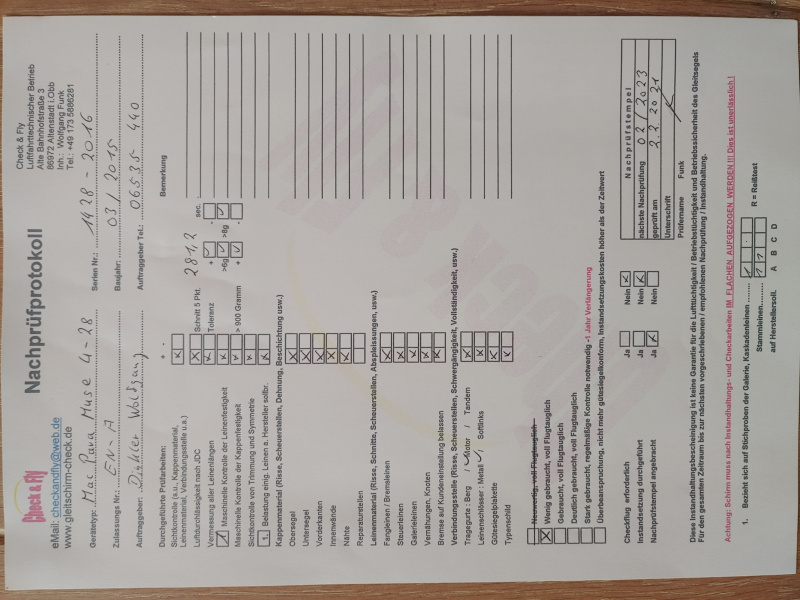 Check & Fly
Nachprüfprotokoll
Check & Fly
Luftfahrttechnischer Betrieb
Alte Bahnhofstraße 3
86972 Altenstadt i.Obb
Inh.: Wolfgang Funk
Tel.: +49 173 5886281
eMail: checkandfly@web.de
www.gleitschirm-check.de
Gerätetyp: Mac Para Muse 4 - 28
Serien Nr.: 1428 - 2016
Zulassungs Nr.: EN-A
Baujahr: 03/2015
Auftraggeber: Wolfgang
Auftraggeber Tel.: 06535 - 440
Durchgeführte Prüfarbeiten:
+ -
Bemerkung
Sichtkontrolle (s.u., Kappenmaterial,
Leinenmaterial, Verbindungsstelle u.a.)
X
Luftdurchlässigkeit nach JDC
X Schnitt 5 Pkt. 281,2 sec.
Vermessung aller Leinenlängen
X Toleranz +
Maschinelle Kontrolle der Leinenfestigkeit
X >6g >8g
Maschinelle Kontrolle der Kappenfestigkeit
X > 900 Gramm +
Sichtkontrolle von Trimmung und Symmetrie
X
1. Belastung eing. Leinen a. Hersteller sollbr.
X
Kappenmaterial (Risse, Scheuerstellen, Dehnung, Beschichtung usw.)
Obersegel X
Untersegel X
Vorderkanten X
Innenwände X
Nähte X
Reparaturstellen
Leinenmaterial (Risse, Schnitte, Scheuerstellen, Abspleissungen, usw.)
Fangleinen / Bremsleinen X
Stauerleinen X
Galerieleinen X
Vernähungen, Knoten X
Bremse auf Kundeneinstellung belassen X
Verbindungsstelle (Risse, Scheuerstellen, Schwergängigkeit, Vollständigkeit, usw.)
Tragegurte : Berg / Motor / Tandem X
Leinenschlösser : Metall / Softlinks X
Gütesiegelplakette X
Typenschild X
Neuwertig, voll Flugtauglich
X Wenig gebraucht, voll Flugtauglich
Gebraucht, voll Flugtauglich
Deutlich gebraucht, voll Flugtauglich
Stark gebraucht, regelmäßige Kontrolle notwendig -1 Jahr Verlängerung
Überbeanspruchung, nicht mehr gütesiegelkonform, Instandsetzungskosten höher als der Zeitwert
Checkflug erforderlich Ja Nein X
Instandsetzung durchgeführt Ja Nein X
Nachprüfstempel angebracht Ja X Nein
Nachprüfstempel
nächste Nachprüfung 02/2023
geprüft am 2.2.2021
Unterschrift
Prüfername Funk
Diese Instandhaltungsbescheinigung ist keine Garantie für die Lufttüchtigkeit / Betriebstüchtigkeit und Betriebssicherheit des Gleitsegels
Für den gesamten Zeitraum bis zur nächsten vorgeschriebenen / empfohlenen Nachprüfung / Instandhaltung.
Achtung: Schirm muss nach Instandhaltungs- und Checkarbeiten IM FLACHEN AUFGEZOGEN WERDEN !!! Dies ist unerlässlich !
1. Bezieht sich auf Stichproben der Galerie, Kaskadenleinen
Stammleinen
R = Reißtest
auf Herstellersoll. A B C D